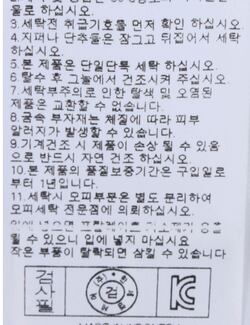 물로 하십시오.
3.세탁전 취급기호를 먼저 확인 하십시오.
4.지퍼나 단추눌은 잠그고 뒤집어서 세탁
하십시오.
5.본 제품은 단일단독 세탁 하십시오.
6.탈수 후 그늘에서 건조시켜 주십시오.
7.세탁부주의로 인한 탈색 및 오염된
제품은 교환할 수 없습니다.
8.굼속 부자재는 체질에 따라 피부
알러지가 발생할 수 있습니다.
9.기계건조 시 제품이 손상 될 수 있음
으로 반드시 자연 건조 하십시오.
10.본 제품의 품질보증기간은 구입일로
부터 1년입니다.
11.세탁시 모피부문은 별도 분리하여
모피세탁 전문점에 의뢰하십시오.
될 수 있으니 입에 넣지 마십시요
작은 부품이 탈락되면 삼킬 수 있습니다
검사필
검
KC